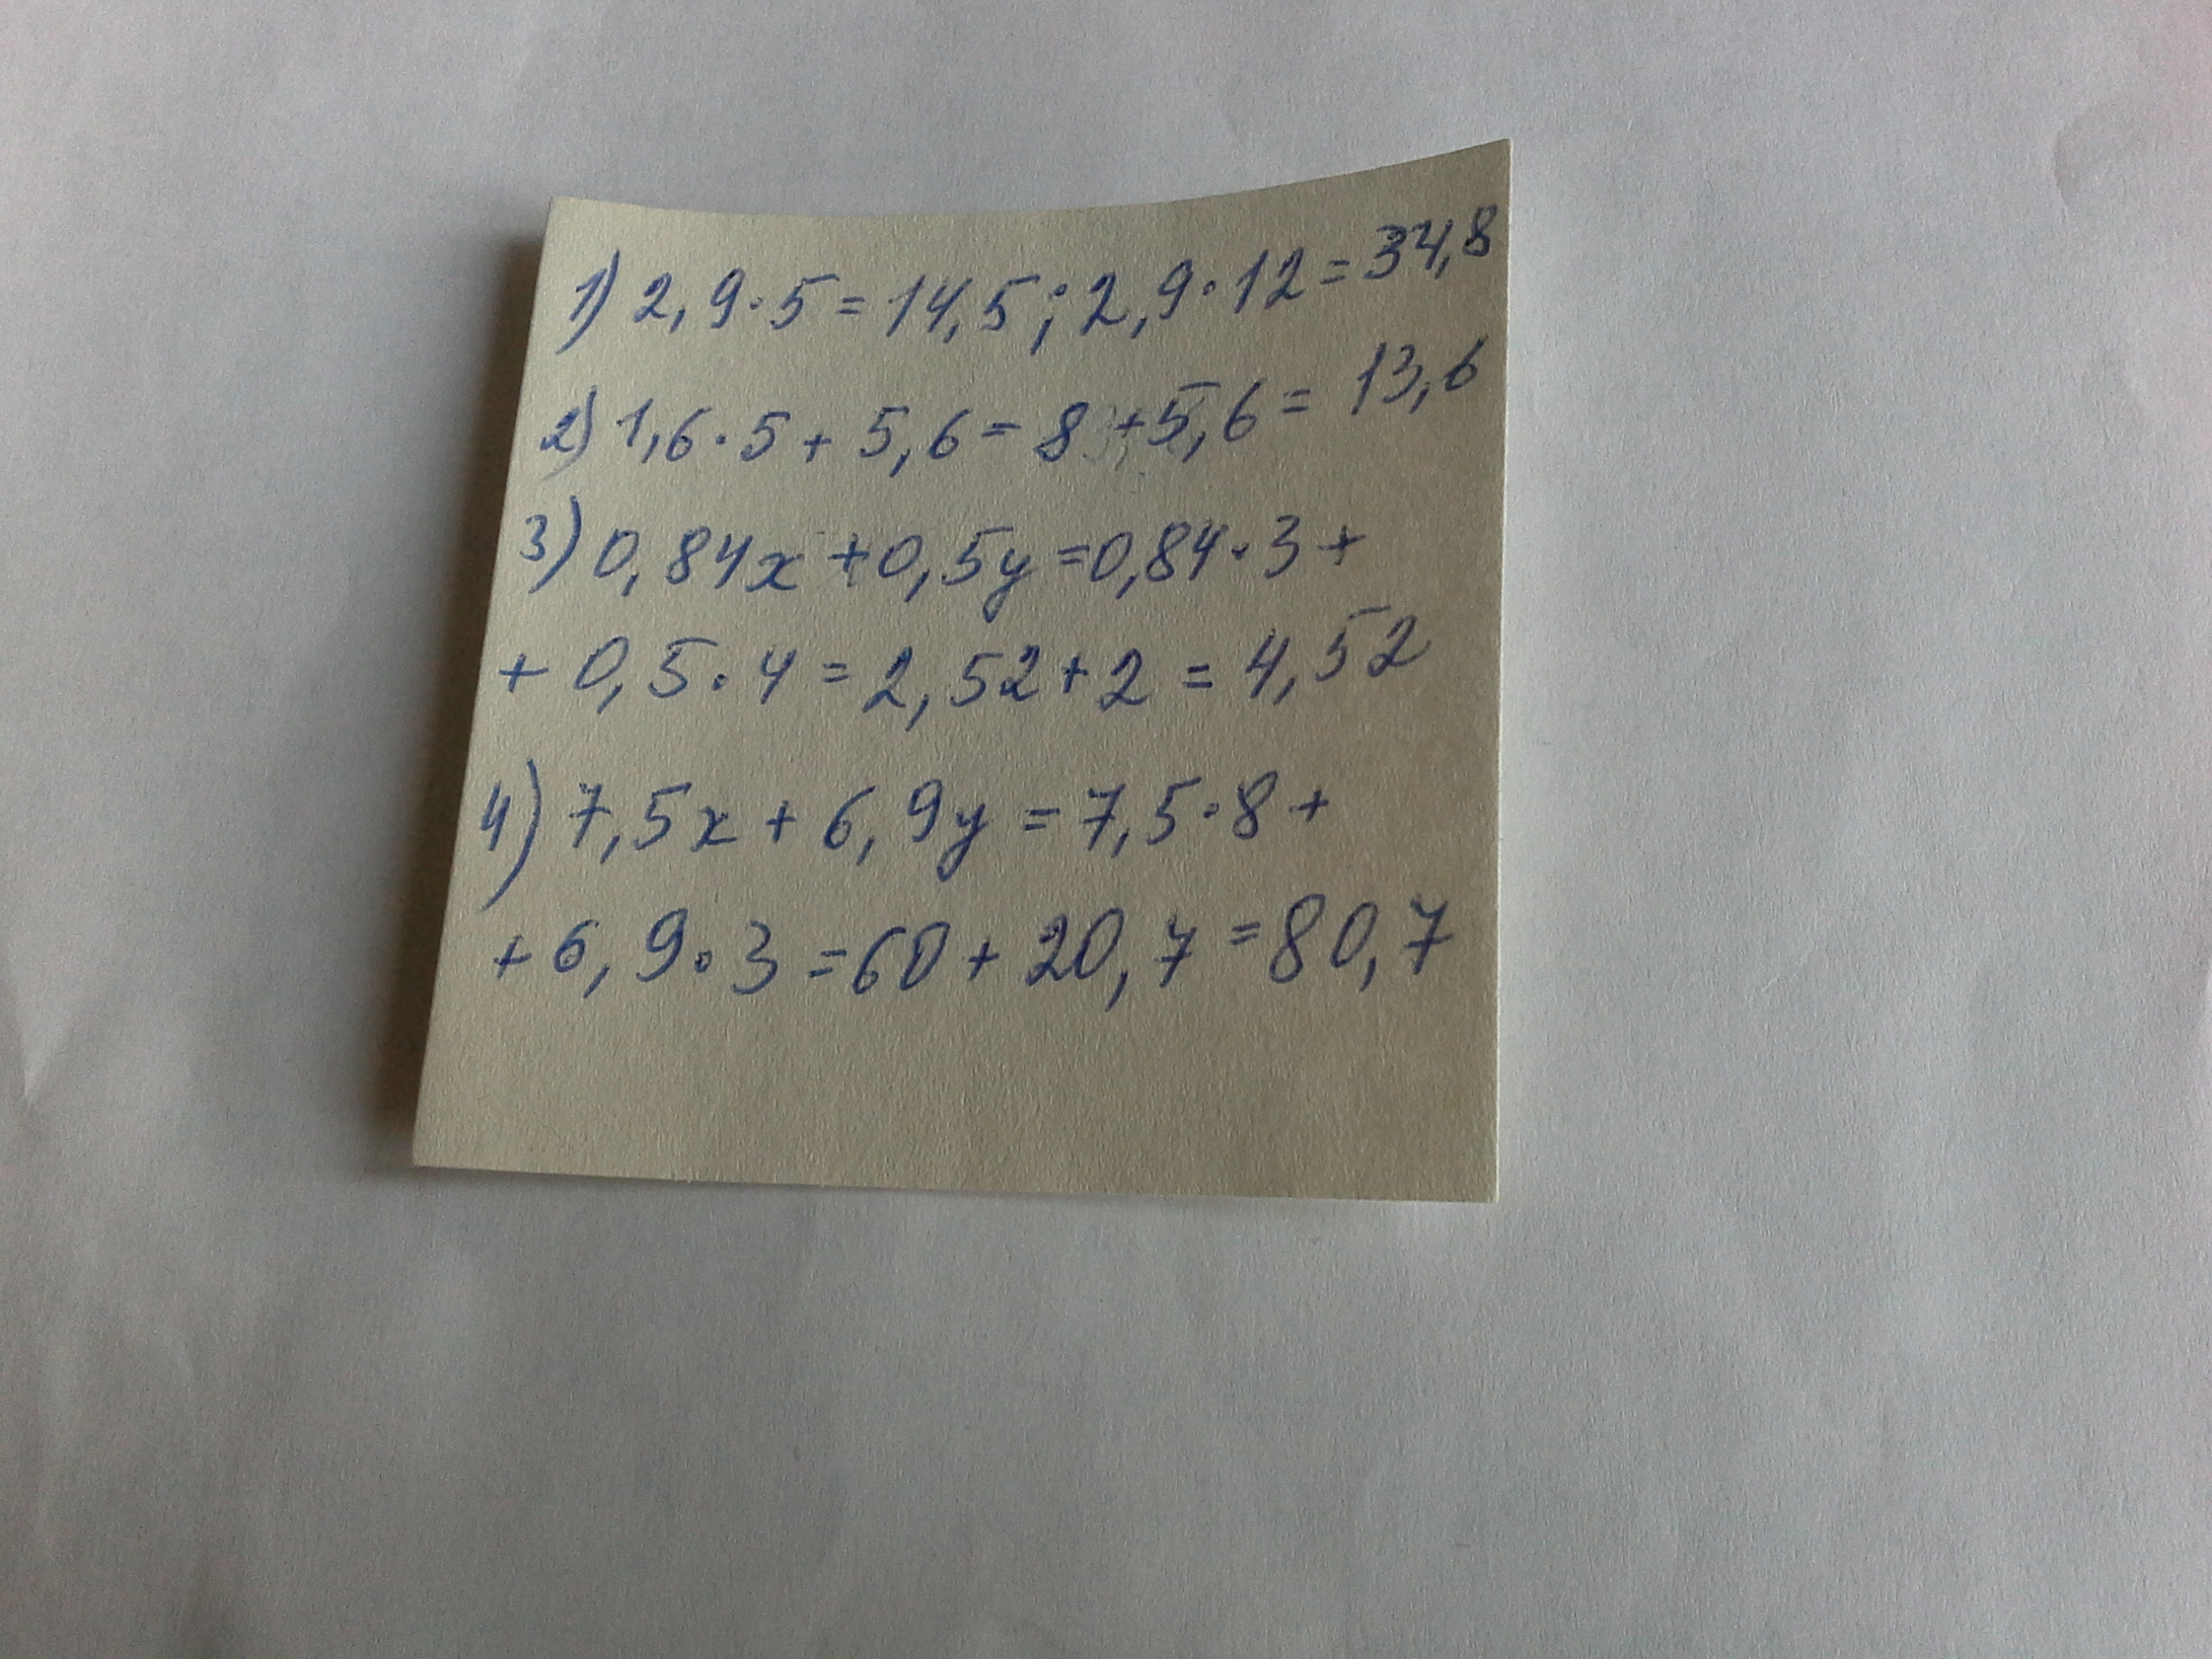 1) 2,9·5=14,5; 2,9·12=34,8
2) 1,6·5+5,6=8+5,6=13,6
3) 0,84x+0,5y=0,84·3+
+0,5·4=2,52+2=4,52
4) 7,5x+6,9y=7,5·8+
+6,9·3=60+20,7=80,7